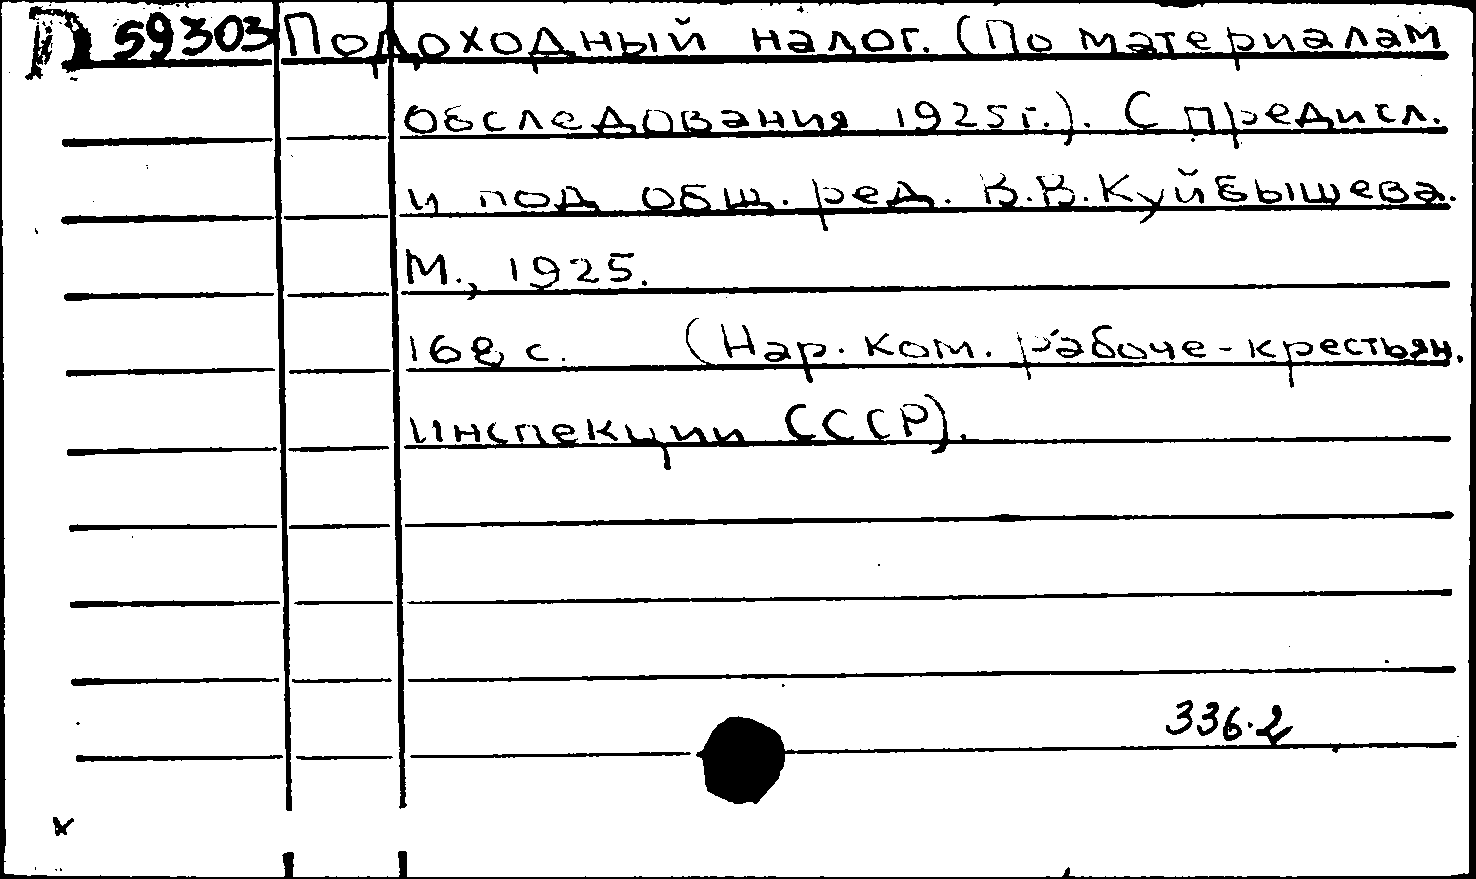 П 59303 Подоходный налог. (По материалам
обследования 1925 г.). С предисл.
и под общ. ред. В.В.Куйбышева.
М., 1925.
168 с. (Нар. ком. рабоче-крестьян.
инспекции СССР).
336.2